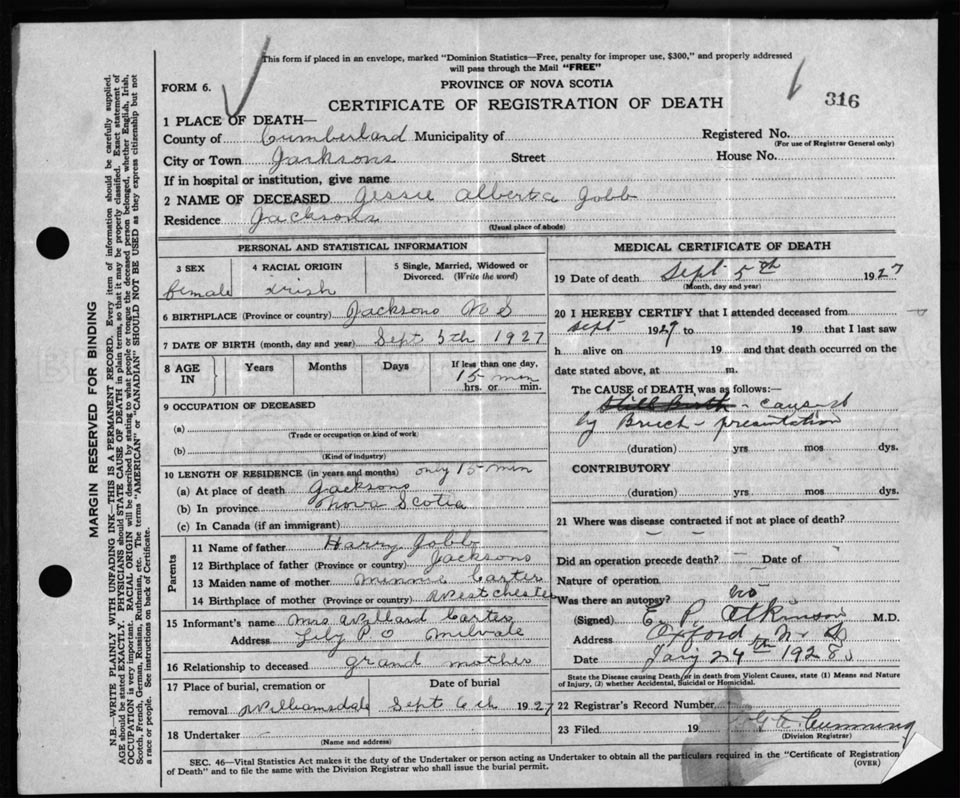 This form if placed in an envelope, marked "Dominion Statistics—Free, penalty for improper use, $300," and properly addressed
will pass through the Mail "FREE"
FORM 6.
PROVINCE OF NOVA SCOTIA
CERTIFICATE OF REGISTRATION OF DEATH
316
1 PLACE OF DEATH—
County of Cumberland Municipality of
Registered No.
(For use of Registrar General only)
City or Town Jacksons Street House No.
If in hospital or institution, give name
2 NAME OF DECEASED Jessie Alberta Jobb
Residence Jacksons
(Usual place of abode)
PERSONAL AND STATISTICAL INFORMATION
3 SEX
female
4 RACIAL ORIGIN
Irish
5 Single, Married, Widowed or
Divorced. (Write the word)
6 BIRTHPLACE (Province or country) Jacksons N S
7 DATE OF BIRTH (month, day and year) Sept 5th 1927
8 AGE
IN
Years
Months
Days
If less than one day,
15 min
hrs. or min.
9 OCCUPATION OF DECEASED
(a)
(Trade or occupation or kind of work)
(b)
(Kind of industry)
10 LENGTH OF RESIDENCE (in years and months) only 15 min
(a) At place of death Jacksons
(b) In province Nova Scotia
(c) In Canada (if an immigrant)
Parents
11 Name of father Harry Jobb
12 Birthplace of father (Province or country) Jacksons
13 Maiden name of mother Minnie Carter
14 Birthplace of mother (Province or country) Westchester
15 Informant's name Mrs Willard Carter
Address Lily P O Milvale
16 Relationship to deceased grand mother
17 Place of burial, cremation or
removal Williamsdale
Date of burial
Sept 6th 1927
18 Undertaker
(Name and address)
MEDICAL CERTIFICATE OF DEATH
19 Date of death Sept 5th 1927
(Month, day and year)
20 I HEREBY CERTIFY that I attended deceased from
Sept 1927 to 19 that I last saw
h alive on 19 and that death occurred on the
date stated above, at m.
The CAUSE of DEATH was as follows:—
Still Birth - caused
by Breech - presentation
(duration) yrs mos dys.
CONTRIBUTORY
(duration) yrs mos dys.
21 Where was disease contracted if not at place of death?
Did an operation precede death? Date of
Nature of operation
Was there an autopsy? no
(Signed) E. P. Atkinson M.D.
Address Oxford N. S.
Date 24th 1928
State the Disease causing Death, or in death from Violent Causes, state (1) Means and Nature
of Injury, (2) whether Accidental, Suicidal or Homicidal.
22 Registrar's Record Number
23 Filed 19 Cumming
(Division Registrar)
SEC. 46—Vital Statistics Act makes it the duty of the Undertaker or person acting as Undertaker to obtain all the particulars required in the "Certificate of Registration
of Death" and to file the same with the Division Registrar who shall issue the burial permit.
(OVER)
MARGIN RESERVED FOR BINDING
N.B.—WRITE PLAINLY WITH UNFADING INK—THIS IS A PERMANENT RECORD. Every item of information should be carefully supplied.
AGE should be stated EXACTLY. PHYSICIANS should STATE CAUSE OF DEATH in plain terms, so that it may be properly classified. Exact statement of
OCCUPATION is very important. RACIAL ORIGIN will be described by stating to what people or tongue the deceased person belonged, whether English, Irish,
Scotch, French, German, Russian, Ruthenian, etc. The terms "AMERICAN" or "CANADIAN" SHOULD NOT BE USED as they express citizenship but not
a race or people. See instructions on back of Certificate.